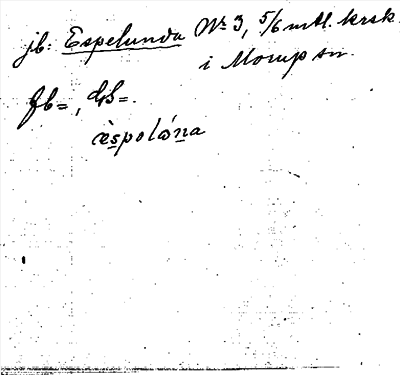 jb: Espelunda Nr 3, 5/6 mtl. krsk.
i Morup sn.
fb=, GB=.
èspoló̱na